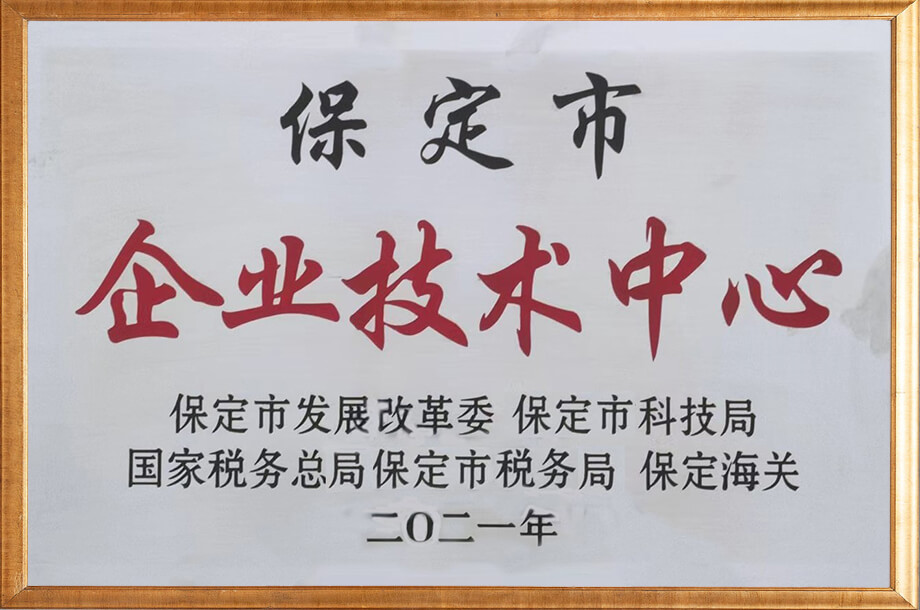 保定市
企业技术中心
保定市发展改革委 保定市科技局
国家税务总局保定市税务局 保定海关
二〇二一年